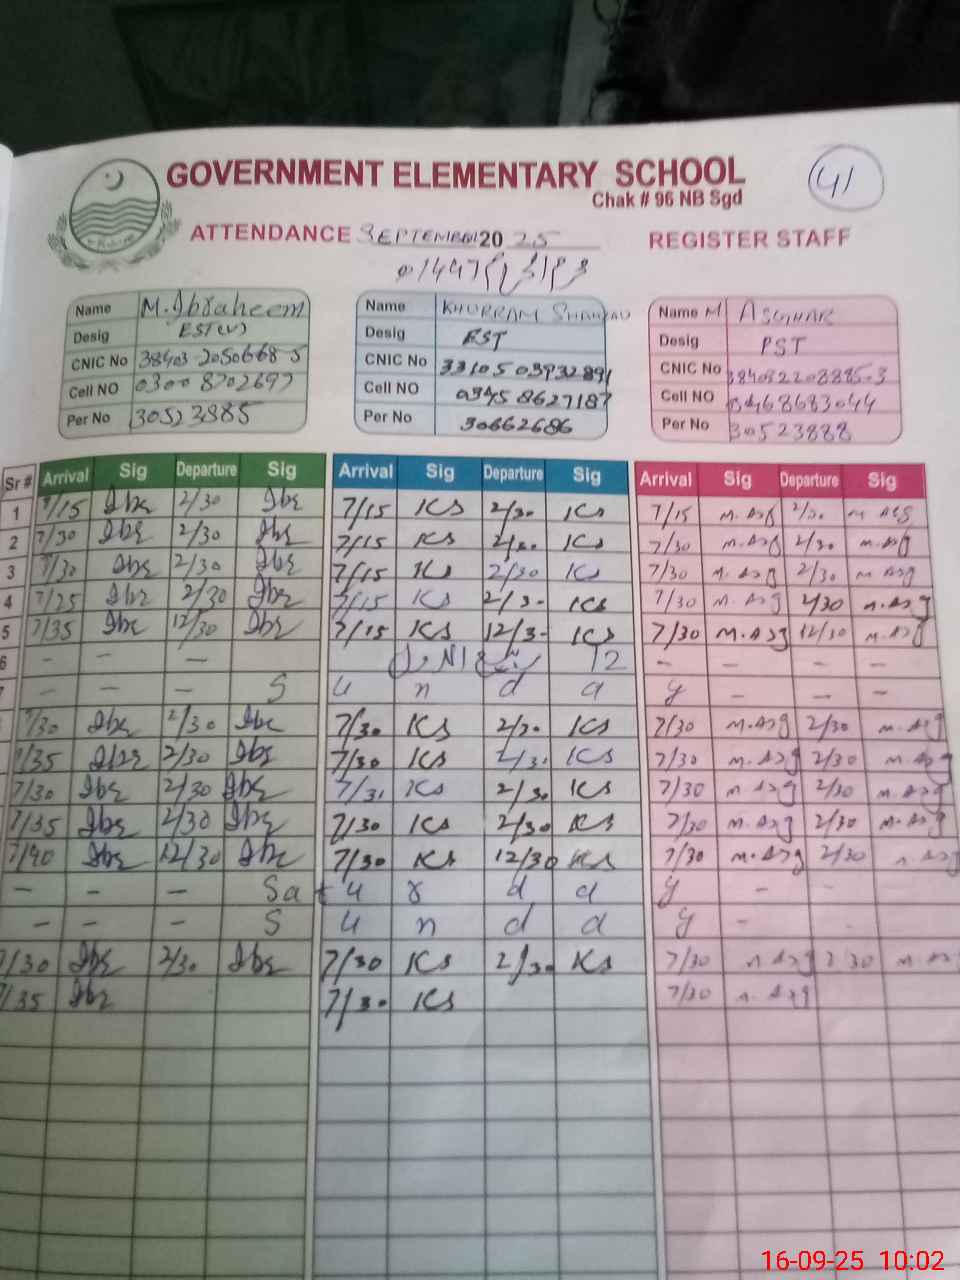 GOVERNMENT ELEMENTARY SCHOOL
41
Chak # 96 NB Sgd
ATTENDANCE SEPTEMBER 2025 REGISTER STAFF
Name M. Ibraheem
Desig EST(V)
CNIC No 38403 2050668 5
Cell NO 0300 8702697
Per No 30523885
Name KHURRAM SHAHZAD
Desig EST
CNIC No
Cell NO 03458627187
Per No 30662686
Name M ASGHAR
Desig PST
CNIC No
Cell NO 03468683044
Per No 30523888
Sr # Arrival Sig Departure Sig Arrival Sig Departure Sig Arrival Sig Departure Sig
1 7/15 Ibr 2/30 Ibr 7/15 KS 2/30 KS 7/15 M. Asg 2/30 M Asg
2 7/30 Ibr 2/30 Ibr 7/15 KS 2/30 KS 7/30 M. Asg 2/30 M. Asg
3 7/30 Ibr 2/30 Ibr 7/15 KS 2/30 KS 7/30 M. Asg 2/30 M Asg
4 7/25 Ibr 2/30 Ibr 7/15 KS 2/30 KS 7/30 M. Asg 2/30 M. Asg
5 7/35 Ibr 12/30 Ibr 7/15 KS 12/30 KS 7/30 M. Asg 12/30 M. Asg
6 - - - 12 - - - -
- - - S u n d a y - - -
7/30 Ibr 2/30 Ibr 7/30 KS 2/30 KS 7/30 M. Asg 2/30 M. Asg
7/35 Ibr 2/30 Ibr 7/30 KS 2/30 KS 7/30 M. Asg 2/30 M. Asg
7/30 Ibr 2/30 Ibr 7/31 KS 2/30 KS 7/30 M Asg 2/30 M. Asg
7/35 Ibr 2/30 Ibr 7/30 KS 2/30 KS 7/30 M. Asg 2/30 M. Asg
7/40 Ibr 12/30 Ibr 7/30 KS 12/30 KS 7/30 M. Asg 2/30 M. Asg
- - - Sa t u r d a y - -
- - - S u n d a y -
7/30 Ibr 2/30 Ibr 7/30 KS 2/30 KS 7/30 M Asg 2 30 M. Asg
7/35 Ibr 7/30 KS 7/30 M. Asg
16-09-25 10:02